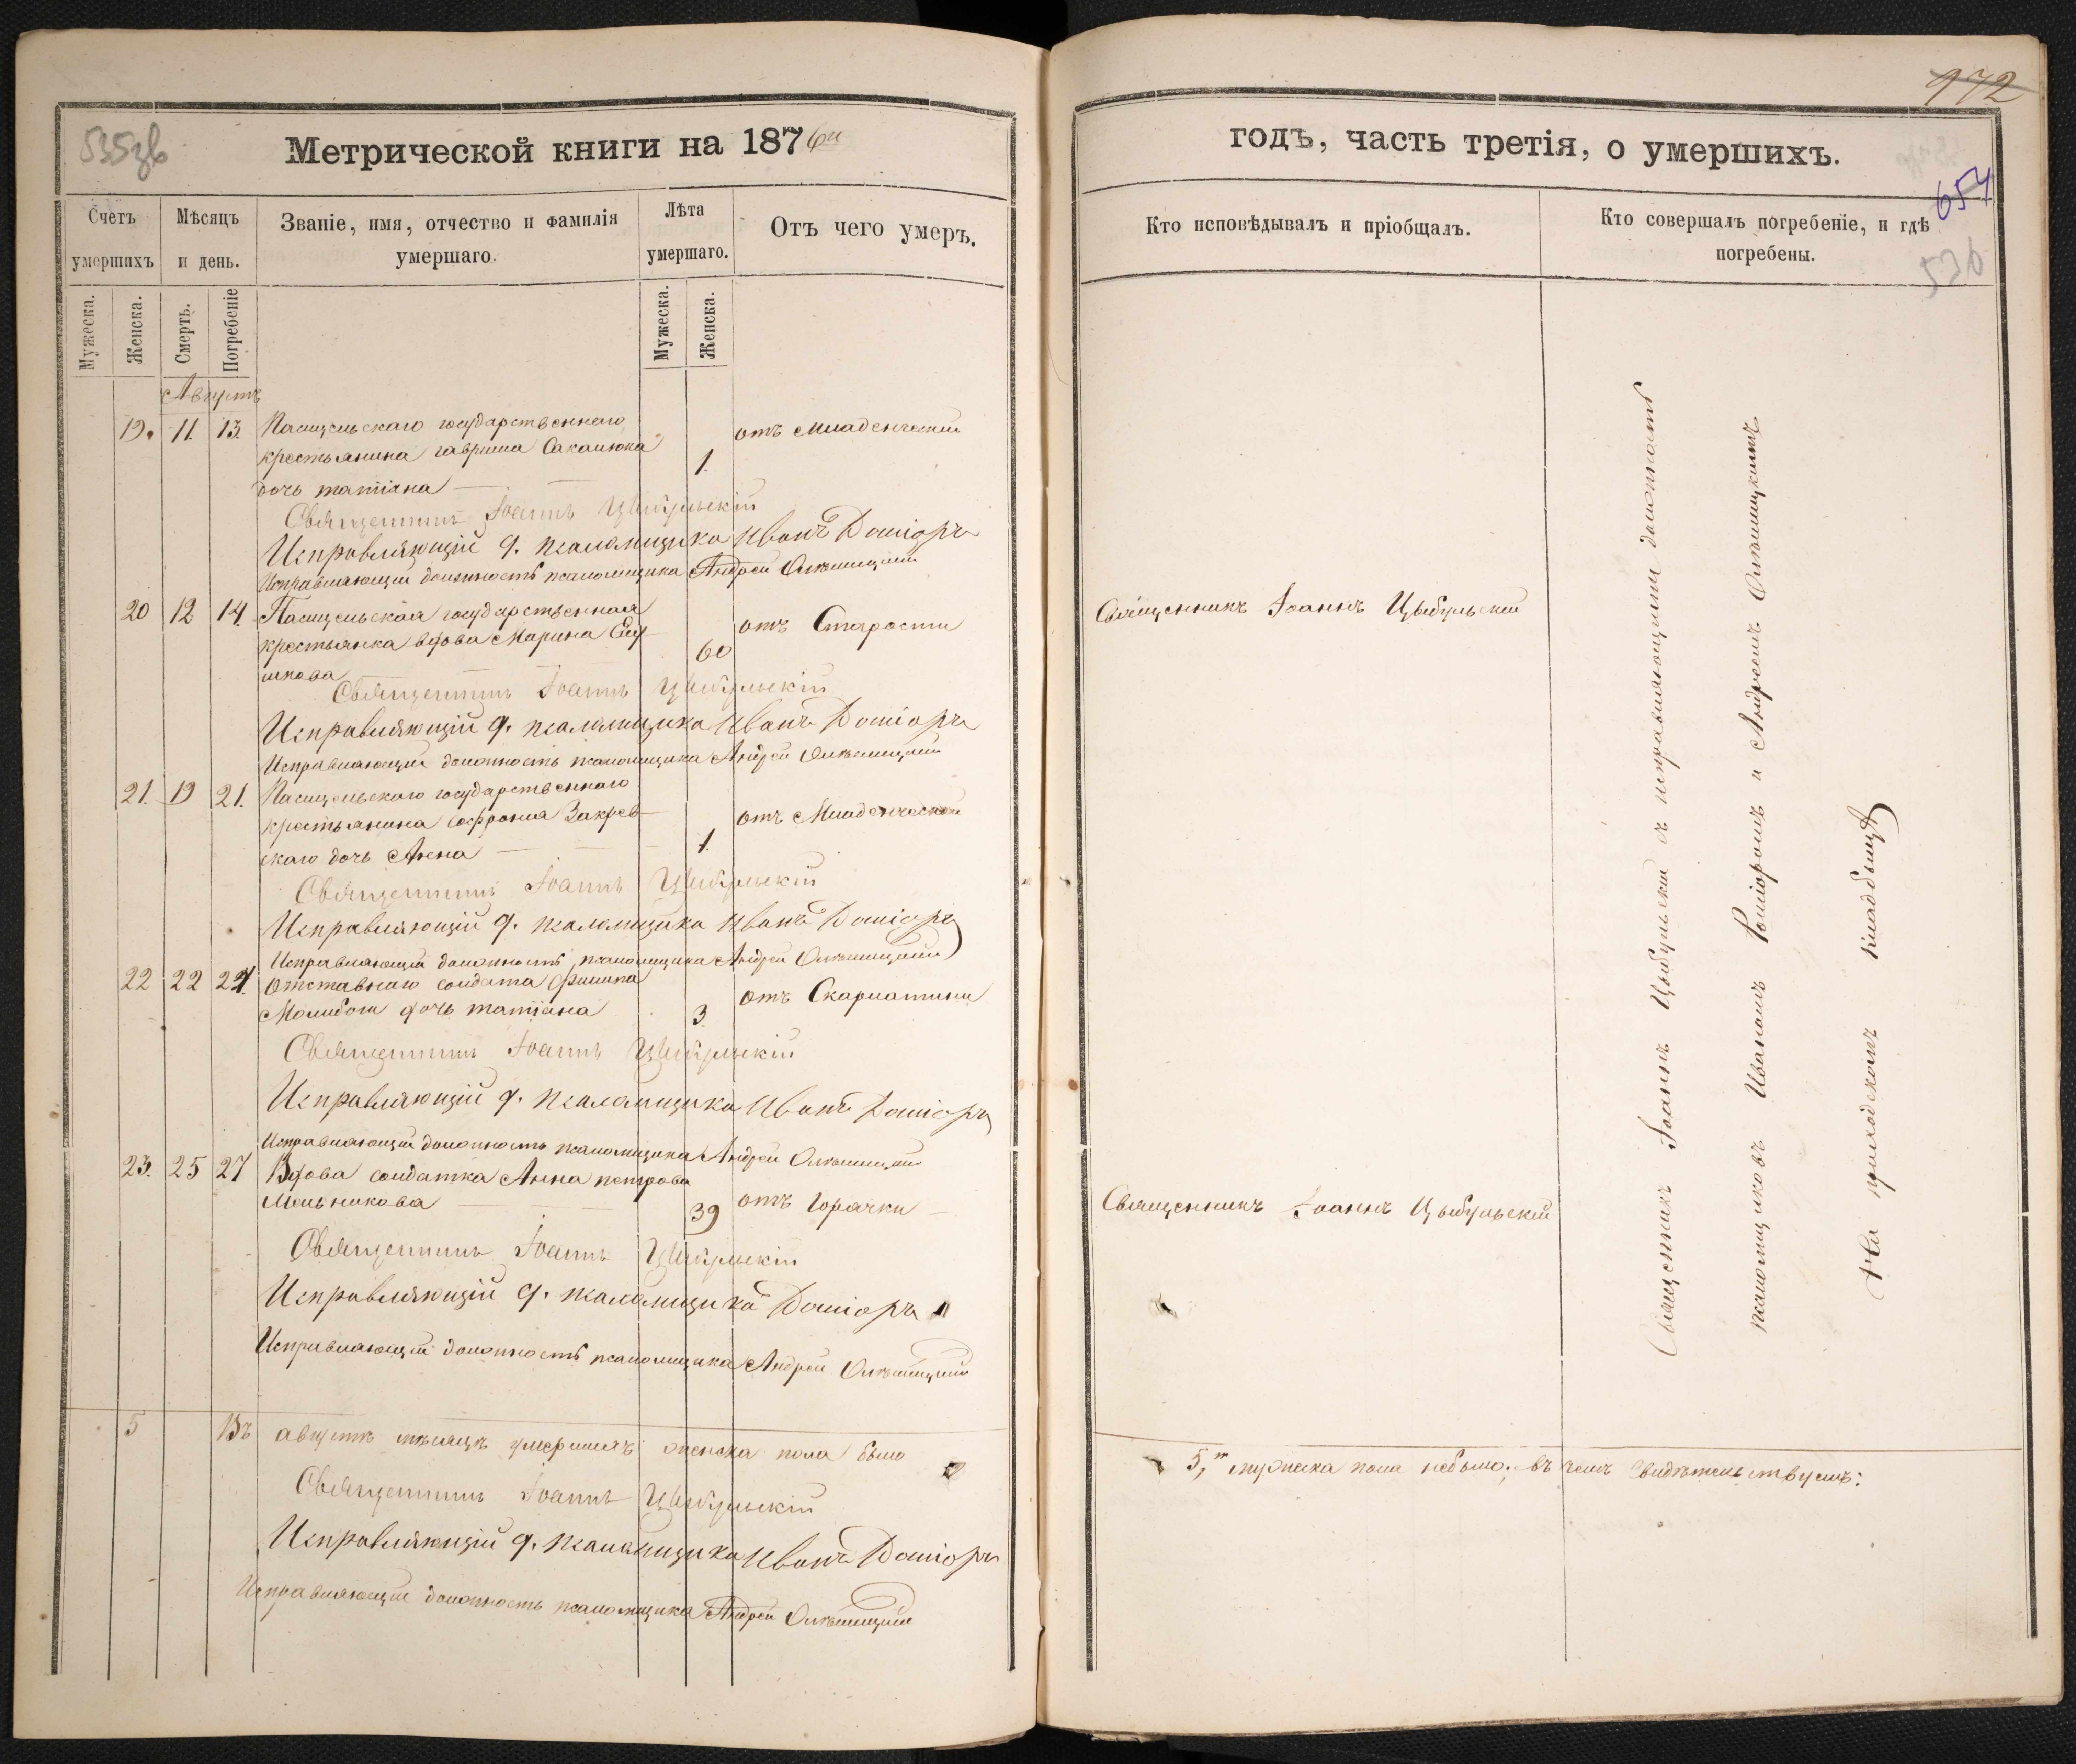 535зв
Метрической книги на 1876й
Счетъ умершихъ
Мѣсяцъ и день.
Званіе, имя, отчество и фамилія умершаго.
Лѣта умершаго.
Отъ чего умеръ.
Мужеска.
Женска.
Смерть.
Погребеніе
Мужеска.
Женска.
Августъ
19. 11. 13. Пасицельскаго государственнаго
крестьянина гаврила Сакалюка 1. отъ младенческой
дочь татіана
Священникъ Іоаннъ Цыбульскій
Исправляющій д. псаломщика Иванъ
Исправляющій должность псаломщика Андрей
20 12 14. Пасицельская государственная
крестьянка вдова Марина 60 отъ Старости
Священникъ Іоаннъ Цыбульскій
Исправляющій д. псаломщика Иванъ
Исправляющій должность псаломщика Андрей
21. 19 21. Пасицельскаго государственнаго
крестьянина софронія Закрев- 1. отъ Младенческой
скаго дочь Анна
Священникъ Іоаннъ Цыбульскій
Исправляющій д. псаломщика Иванъ
Исправляющій должность псаломщика Андрей
22 22 24. отставнаго солдата филипа
дочь татіана 3. отъ Скарлатины
Священникъ Іоаннъ Цыбульскій
Исправляющій д. псаломщика Иванъ
Исправляющій должность псаломщика Андрей
23. 25 27 Вдова солдатка Анна петрова
Мельникова 39 отъ Горячки
Священникъ Іоаннъ Цыбульскій
Исправляющій д. псаломщика
Исправляющій должность псаломщика Андрей
5 Въ августѣ мѣсяцѣ умершихъ женска пола было
Священникъ Іоаннъ Цыбульскій
Исправляющій д. псаломщика Иванъ
Исправляющій должность псаломщика Андрей
172
годъ, часть третія, о умершихъ.
654
536
Кто исповѣдывалъ и пріобщалъ.
Кто совершалъ погребеніе, и гдѣ погребены.
Священникъ Іоаннъ Цыбульскій
Священникъ Іоаннъ Цыбульскій
Священникъ Іоаннъ Цыбульскій съ исправляющими должность
псаломщиковъ Иваномъ и Андреемъ
На приходскомъ кладбищѣ
5, мужеска пола небыло; въ чемъ свидѣтельствуемъ: